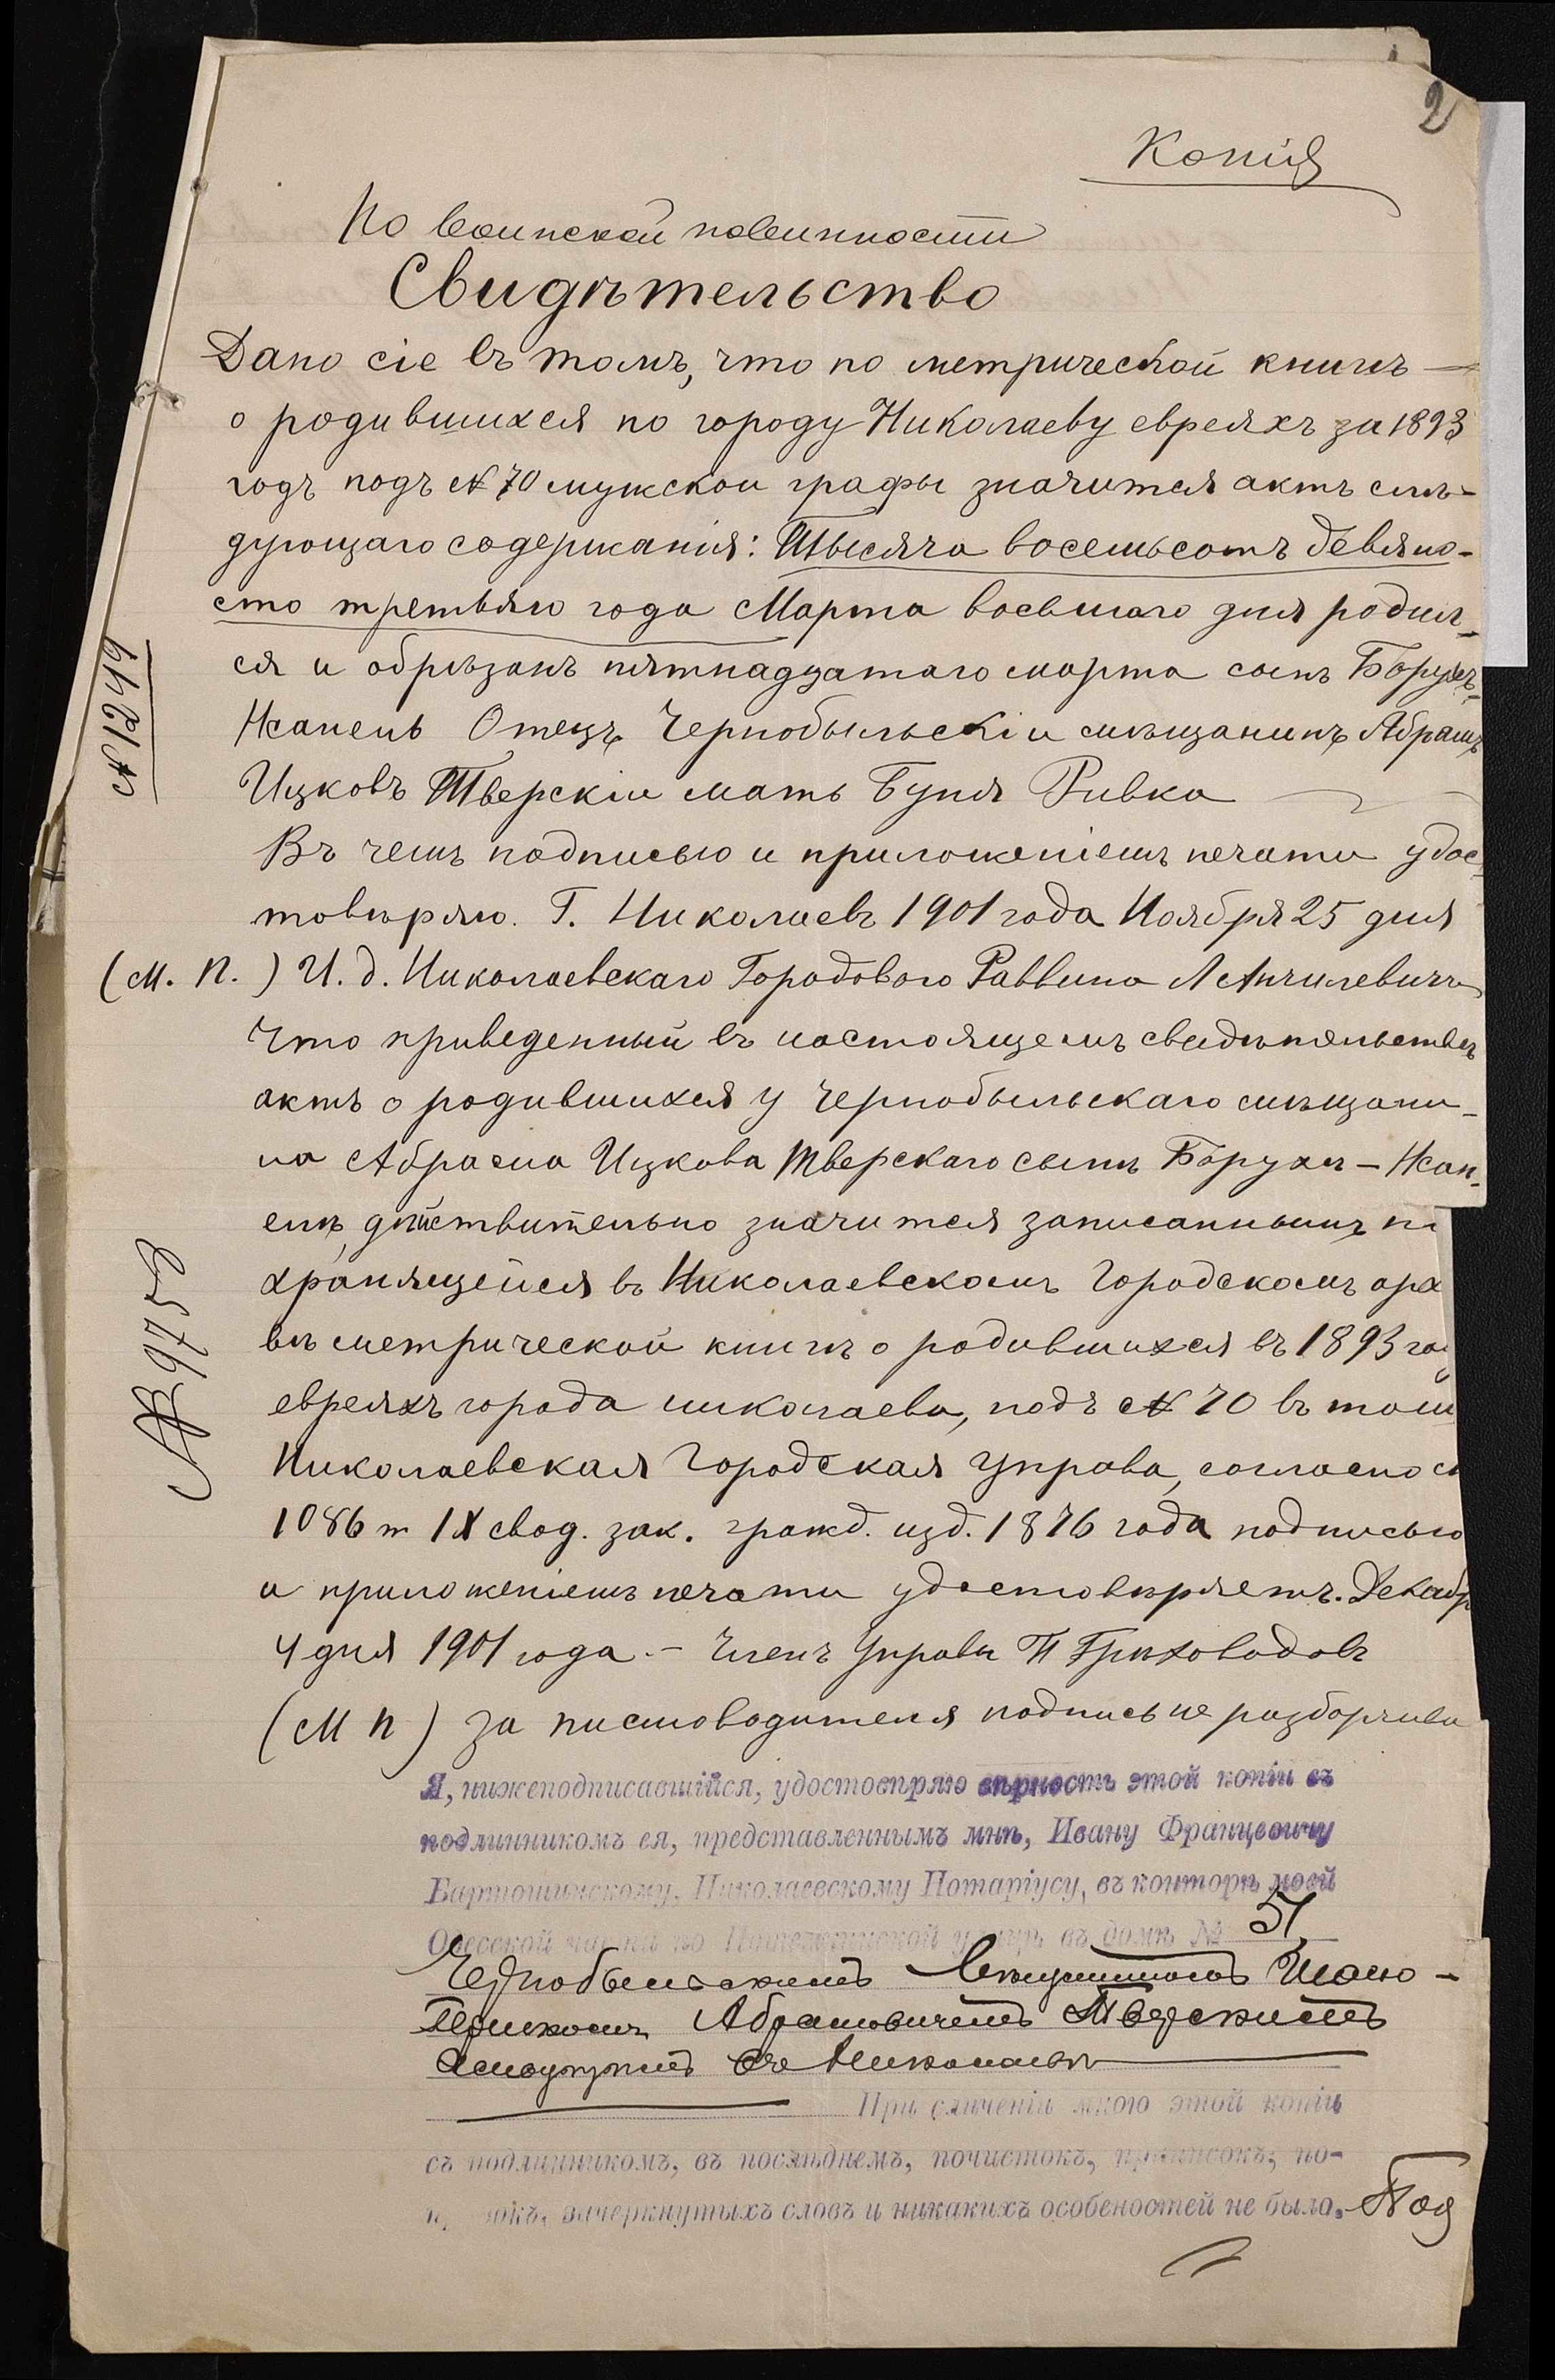 2
Копія
По воинской повинности
Свидѣтельство
Дано сіе въ томъ, что по метрической книгѣ —
о родившихся по городу Николаеву евреяхъ за 1893
годъ подъ № 70 мужской графы значится актъ слѣ-
дующаго содержанія: Тысяча восемьсотъ девяно-
сто третьяго года Марта восьмаго дня родил-
ся и обрѣзанъ пятнадцатаго марта сынъ Борухъ-
Жанель Отецъ Чернобыльскій мѣщанинъ Абрамъ
Ицковъ Тверскій мать Буня Ривка
Въ чемъ подписью и приложеніемъ печати удос-
товѣряю. Г. Николаевъ 1901 года Ноября 25 дня
(М. П.) И. д. Николаевскаго Городового Раввина Л Анчилевичъ
Что приведенный въ настоящемъ свидѣтельствѣ
актъ о родившихся у Чернобыльскаго мѣщани-
на Абрама Ицкова Тверскаго сынъ Борухъ - Жан-
ель, дѣйствительно значится записаннымъ по
хранящейся въ Николаевскомъ Городскомъ арх
вѣ метрической книгѣ о родившихся въ 1893 год
евреяхъ города Николаева, подъ № 70 въ томъ
Николаевская Городская Управа, согласно с
1086 т IX свод. зак. гражд. изд. 1876 года подписью
и приложеніемъ печати удостовѣряетъ. Декабр
4 дня 1901 года. - Членъ Управы П Грѣховодовъ
(М П) За письмоводителя подпись не разборчива
Я, нижеподписавшійся, удостовѣряю вѣрность этой копіи съ
подлинникомъ ея, представленнымъ мнѣ, Ивану Францовичу
Бартошинскому, Николаевскому Нотаріусу, въ конторѣ моей
Одесской части по улицѣ въ домѣ № 51,
Чернобыльскимъ мѣщаниномъ
Абрамовичемъ Тверскимъ
живущимъ въ Николаевѣ
При сличеніи мною этой копіи
съ подлинникомъ, въ послѣднемъ, почистокъ, приписокъ, по-
зачеркнутыхъ словъ и никакихъ особеностей не было. Под
№ 1249
№ 9753